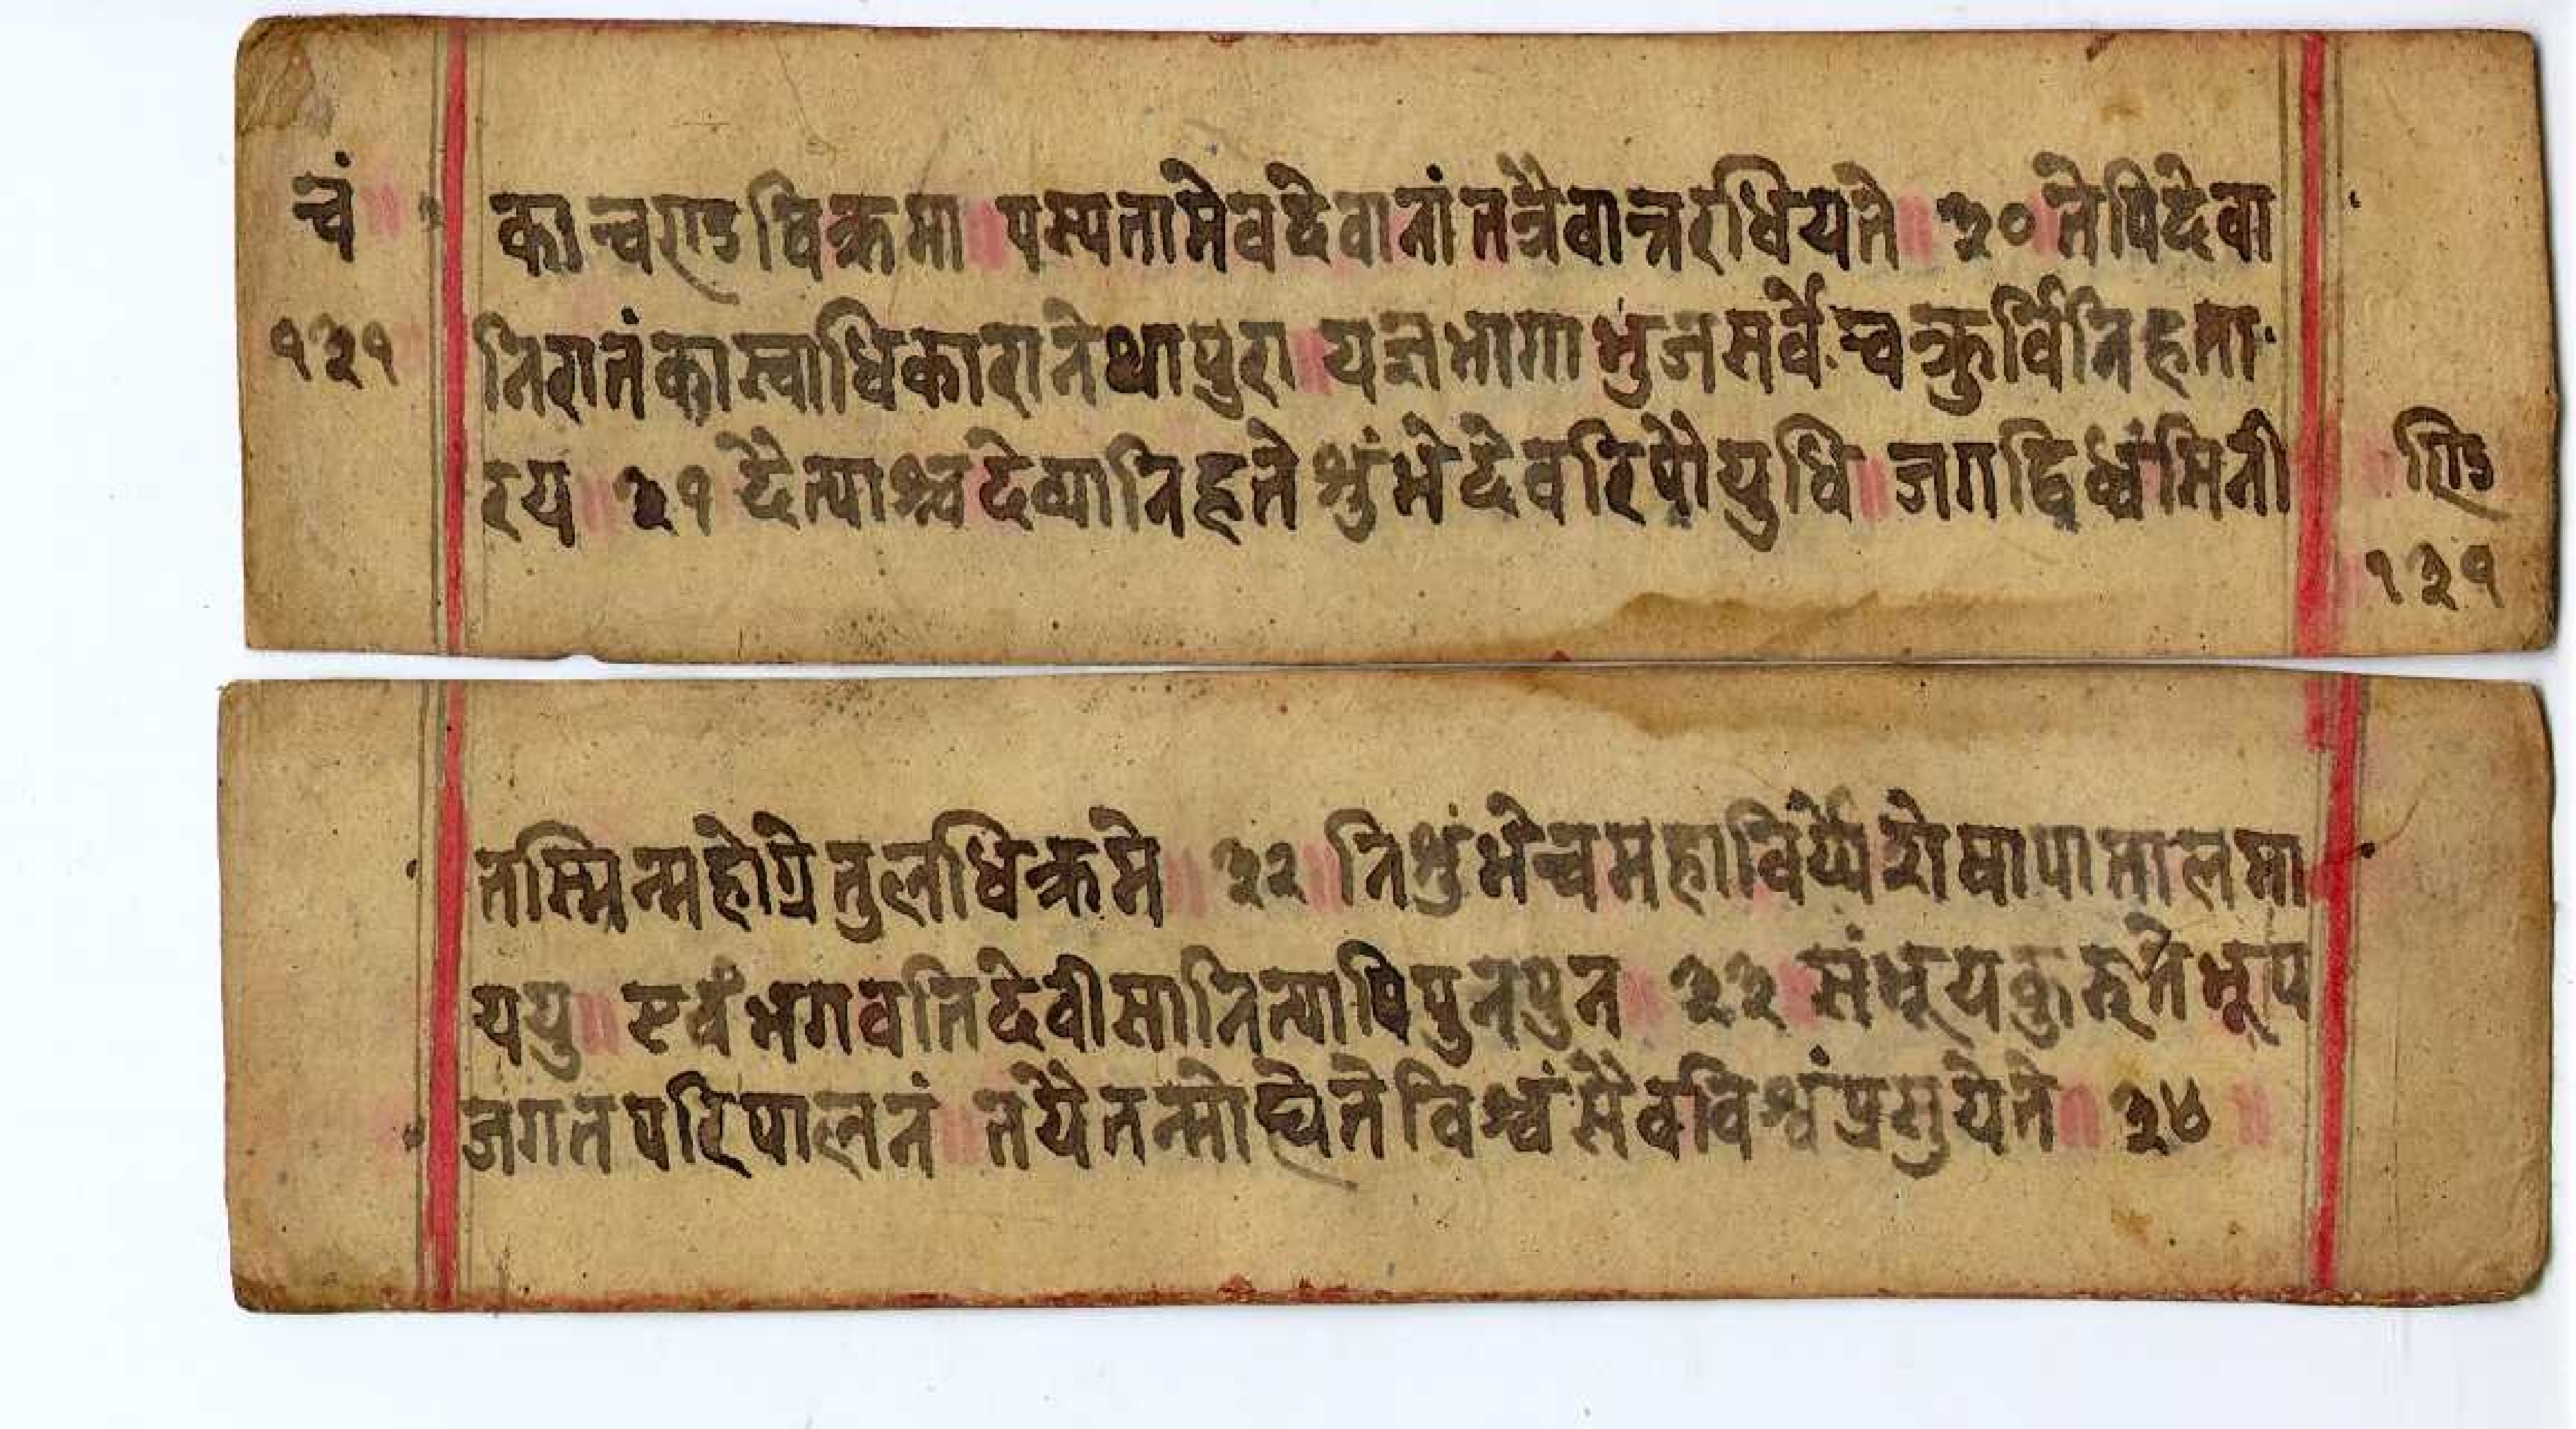 चं
१३१
काचण्डविक्रमा ॥ पस्पतामेवदेवानां तत्रैवान्त्ररधियते ॥ ३० ॥ तेपिदेवा
निरातंकास्वाधिकारानेथापुरा ॥ यज्ञभागाभुजसर्वेचक्रुर्विनिहता
रय ॥ ३१ दैत्याश्चदेव्यानिहतेश्रुंभेदेवरिपौयुधि ॥ जगद्विध्वंसिनी
ण्डि
१३१
तस्मिन्महोग्रेतुलविक्रमे ॥ ३२ ॥ निश्रुंभेचमहाविर्य्येशेषापातालमा
ययु ॥ एवंभगवतिदेवीसानित्यापिपुनपुन ॥ ३३ ॥ संभूयकुरुतेभूप
जगतपरिपालनं ॥ तयैतन्मोह्यतेविश्वंसैवविश्वंप्रसुयेते ॥ ३४ ॥